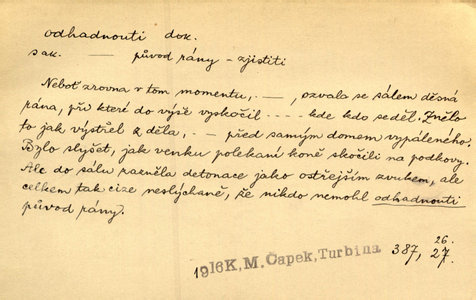 odhadnouti dok.
sak. —— původ rány – zjistiti
Neboť zrovna v tom momentu, . — , ozvala se sálem děsná
rána, při které do výše vyskočil . - - . kde kdo seděl. Znělo
to jak výstřel z děla, . - — před samým domem vypáleného.
Bylo slyšet, jak venku polekaní koně skočili na podkovy.
Ale do sálu razněla detonace jako ostřejším zvukem, ale
celkem tak cize neslýchaně, že nikdo nemohl odhadnouti
původ rány.
26.
1916 K, M. Čapek, Turbina 387, 27.